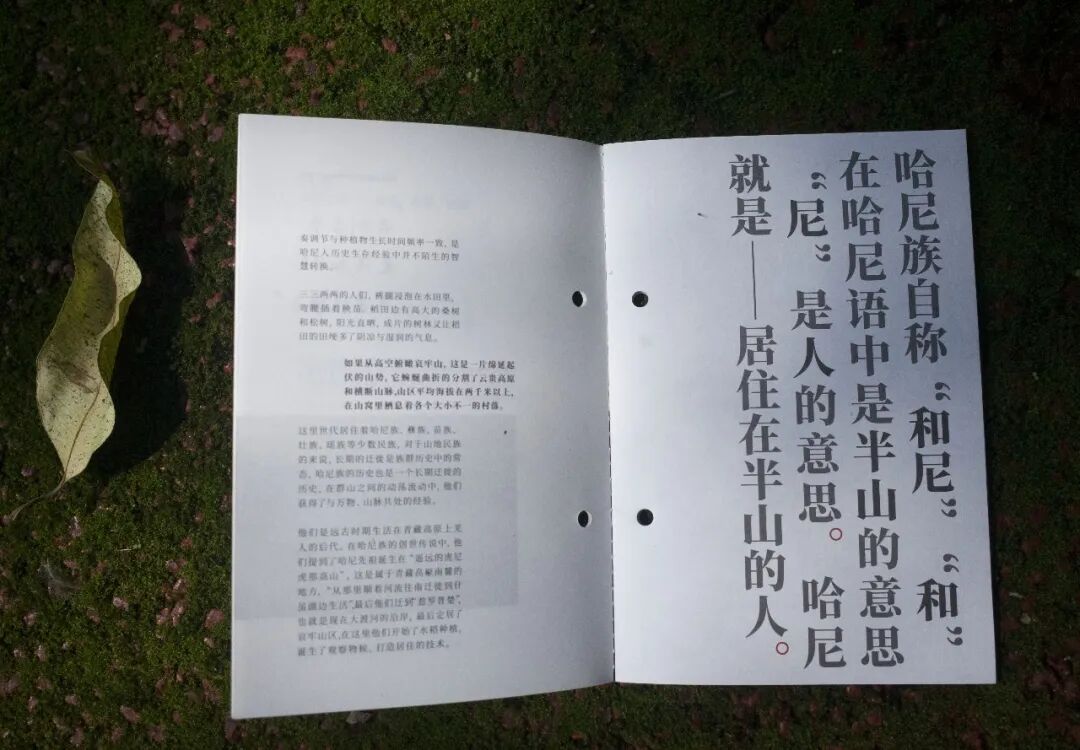 奏调节与种植物生长时间频率一致，是
哈尼人历史生存经验中并不陌生的智
慧转换。
三三两两的人们，裤腿浸泡在水田里，
弯腰插着秧苗。稻田边有高大的桑树
和松树，阳光直晒，成片的树林又让稻
田的田埂多了阴凉与湿润的气息。
如果从高空俯瞰哀牢山，这是一片绵延起
伏的山势，它蜿蜒曲折的分割了云贵高原
和横断山脉,山区平均海拔在两千米以上，
在山窝里栖息着各个大小不一的村落。
这里世代居住着哈尼族、彝族、苗族、
壮族、瑶族等少数民族。对于山地民族
的来说，长期的迁徙是族群历史中的常
态，哈尼族的历史也是一个长期迁徙的
历史，在群山之间的动荡流动中，他们
获得了与万物、山脉共处的经验。
他们是远古时期生活在青藏高原上羌
人的后代。在哈尼族的创世传说中，他
们提到了哈尼先祖诞生在“遥远的虎尼
虎那高山”，这是属于青藏高原南麓的
地方，“从那里顺着河流往南迁徙到什
虽湖边生活”,最后他们迁到“惹罗普楚”,
也就是现在大渡河的沿岸，最后定居了
哀牢山区,在这里他们开始了水稻种植,
诞生了观察物候、打造居住的技术。
哈尼族自称“和尼”“和”
在哈尼语中是半山的意思
“尼”是人的意思。哈尼
就是——居住在半山的人。